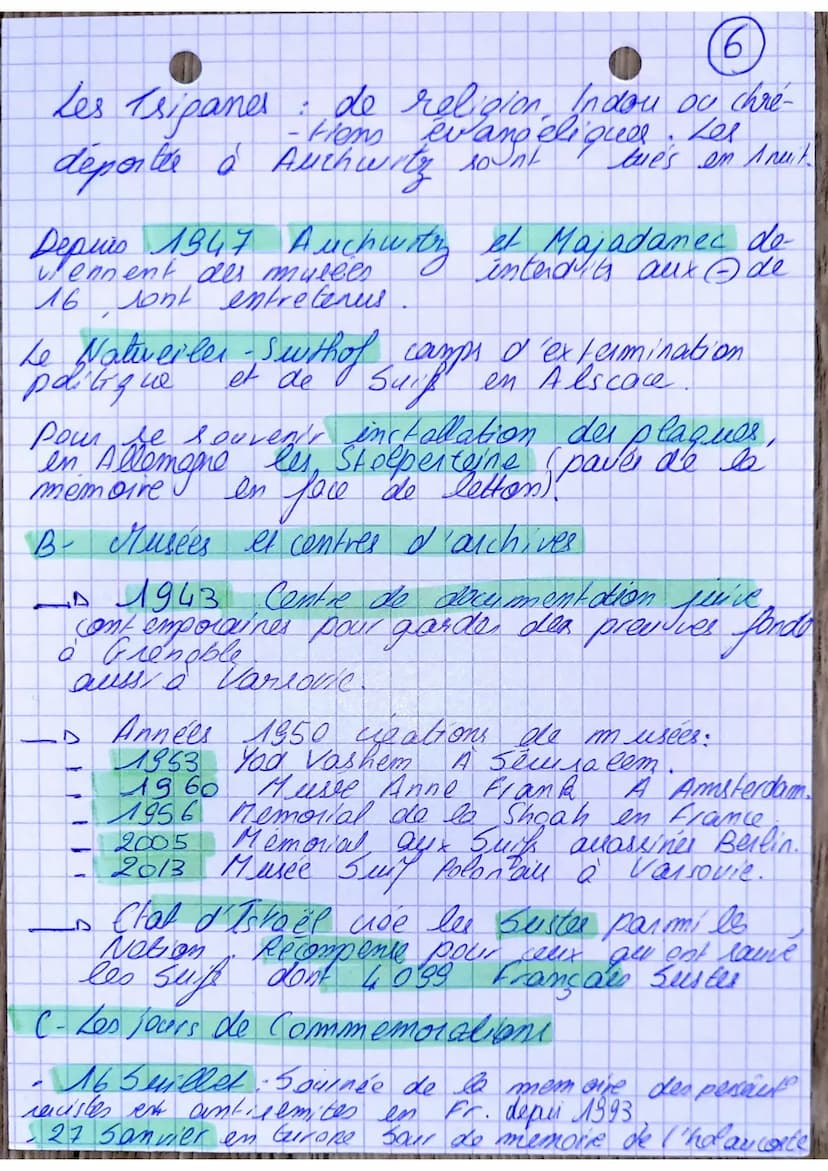 6
Les Tsiganes : de religion Indou ou chré-
-tions évangéliques. Les
déportés à Auchwitz sont tués en 1 nuit.
Depuis 1947 Auchwitz et Majadanec de-
viennent des musées interdits aux ⊖ de
16, sont entretenus.
Le Natweiler-Suthof camps d'extermination
politique et de Juifs en Alscace.
Pour se souvenir installation des plaques,
en Allemagne les Stolperteine (pavés de la
mémoire en face de letton).
B- Musées et centres d'archives
→ 1943 Centre de documentation juive
contemporaines pour garder des preuves fondé
à Grenoble
aussi à Varsovie.
→ Années 1950 créations de musées:
- 1953 Yad Vashem À Jérusalem.
- 1960 Musée Anne Frank A Amsterdam.
- 1956 Mémorial de la Shoah en France
- 2005 Mémorial aux Juifs assassinés Berlin.
- 2013 Musée Juif Polonais à Varsovie.
→ Etat d'Israël crée les Justes parmi les
Nation. Récompense pour ceux qui ont sauvé
les Juifs dont 4 099 Français Justes
C- Les jours de Commemorations
- 16 Juillet : Journée de la mémoire des
racistes et antisemites en Fr. depui 1993
- 27 Janvier en Europe Jour de memoire de l'holaucoste